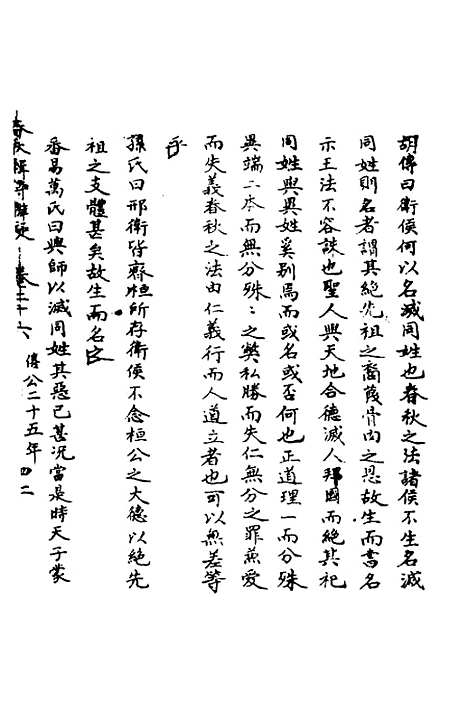 胡傳曰衛侯何以名滅同姓也春秋之法諸侯不生名滅
同姓則名者謂其絶先祖之裔蔑骨肉之恩故生而書名
示王法不容誅也聖人與天地合德滅人邦國而絶其祀
同姓與異姓奚别焉而或名或否何也正道理一而分殊
異端二本而無分殊：之獘私勝而失仁無分之罪兼愛
而失義春秋之法由仁義行而人道立者也可以無差等
乎
孫氏曰邢衛皆齊桓所存衛侯不念桓公之大德以絶先
祖之支體甚矣故生而名之
番易萬氏曰興師以滅同姓其惡已甚况當是時天子蒙
春秋 卷之十六 僖公二十五年 四二